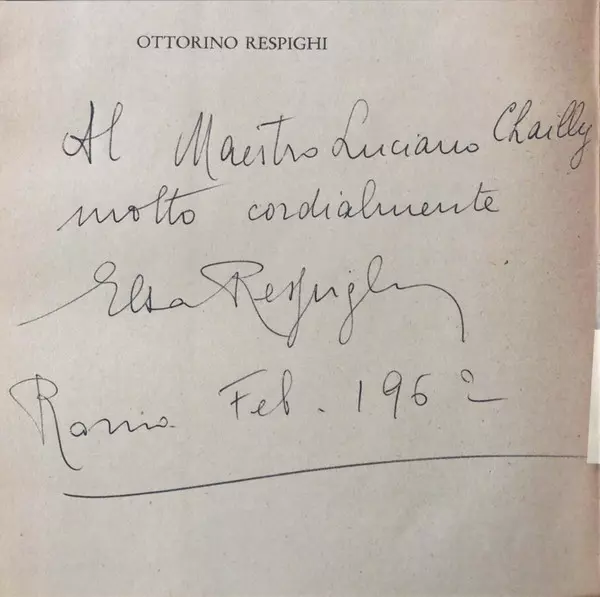 OTTORINO RESPIGHI
Al Maestro Luciano Chailly
molto cordialmente
Elsa Respighi
Roma Feb. 1962